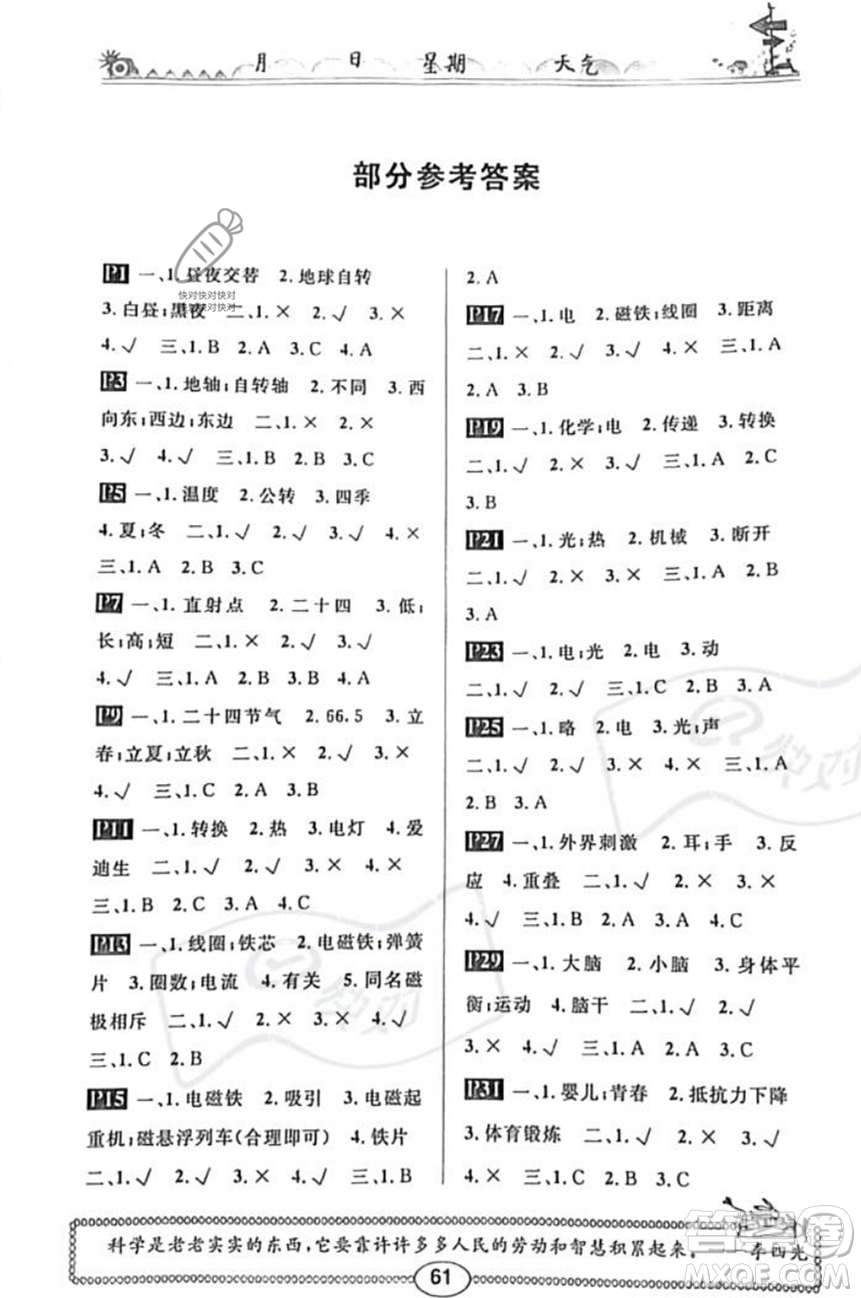 月 日 星期 天气
部分参考答案
快对快对快对
快对快对快对
P1 一、1. 昼夜交替 2. 地球自转
3. 白昼;黑夜 二、1. × 2. √ 3. ×
4. √ 三、1. B 2. A 3. C 4. A
P3 一、1. 地轴;自转轴 2. 不同 3. 西
向东;西边;东边 二、1. × 2. ×
3. √ 4. √ 三、1. B 2. B 3. A
P5 一、1. 温度 2. 公转 3. 四季
4. 夏;冬 二、1. √ 2. √ 3. √ 4. ×
三、1. A 2. B 3. C
P7 一、1. 直射点 2. 二十四 3. 低;
长;高;短 二、1. × 2. √ 3. √
4. √ 三、1. A 2. B 3. B 4. A
P9 一、1. 二十四节气 2. 66.5 3. 立
春;立夏;立秋 二、1. × 2. × 3. ×
4. √ 三、1. C 2. A 3. B
P11 一、1. 转换 2. 热 3. 电灯 4. 爱
迪生 二、1. √ 2. √ 3. × 4. ×
三、1. B 2. C 3. A 4. C
P13 一、1. 线圈;铁芯 2. 电磁铁;弹簧
片 3. 圈数;电流 4. 有关 5. 同名磁
极相斥 二、1. √ 2. × 3. × 4. √
5. × 三、1. C 2. C
P15 一、1. 电磁铁 2. 吸引 3. 电磁起
重机;磁悬浮列车(合理即可) 4. 铁片
二、1. √ 2. √ 3. × 4. √ 三、1. B
2. A
P17 一、1. 电 2. 磁铁;线圈 3. 距离
二、1. × 2. × 3. √ 4. × 三、1. A
2. A 3. B
P19 一、1. 化学;电 2. 传递 3. 转换
二、1. √ 2. × 3. √ 三、1. A 2. C
3. B
P21 一、1. 光;热 2. 机械 3. 断开
二、1. √ 2. × 3. √ 三、1. A 2. B
3. A
P23 一、1. 电;光 2. 电 3. 动
二、1. √ 2. √ 三、1. C 2. B 3. A
P25 一、1. 略 2. 电 3. 光;声
二、1. √ 2. √ 3. √ 4. × 三、1. A
2. B 3. A
P27 一、1. 外界刺激 2. 耳;手 3. 反
应 4. 重叠 二、1. √ 2. √ 3. ×
4. √ 三、1. B 2. A 3. A 4. C
P29 一、1. 大脑 2. 小脑 3. 身体平
衡;运动 4. 脑干 二、1. √ 2. √
3. × 4. √ 三、1. A 2. B 3. C
P31 一、1. 婴儿;青春 2. 抵抗力下降
3. 体育锻炼 二、1. √ 2. √ 3. √
4. × 三、1. C 2. A 3. C
科学是老老实实的东西,它要靠许许多多人民的劳动和智慧积累起来。 ——李四光
61